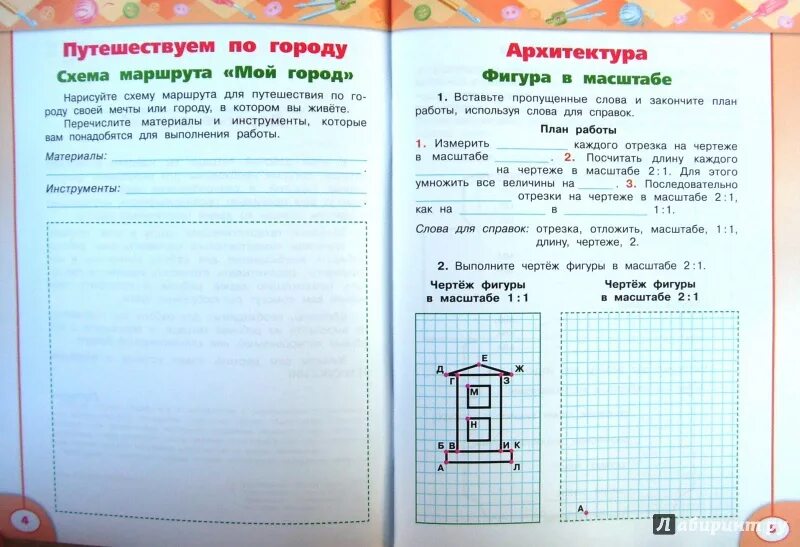 Путешествуем по городу
Схема маршрута «Мой город»
Нарисуйте схему маршрута для путешествия по го-
роду своей мечты или городу, в котором вы живёте.
Перечислите материалы и инструменты, которые
вам понадобятся для выполнения работы.
Материалы:
Инструменты:
4
Архитектура
Фигура в масштабе
1. Вставьте пропущенные слова и закончите план
работы, используя слова для справок.
План работы
1. Измерить каждого отрезка на чертеже
в масштабе . 2. Посчитать длину каждого
на чертеже в масштабе 2:1. Для этого
умножить все величины на . 3. Последовательно
отрезки на чертеже в масштабе 2:1,
как на в 1:1.
Слова для справок: отрезка, отложить, масштабе, 1:1,
длину, чертеже, 2.
2. Выполните чертёж фигуры в масштабе 2:1.
Чертёж фигуры
в масштабе 1:1
Чертёж фигуры
в масштабе 2:1
Е
Д Ж
Г З
М
Н
Б В И К
А Л
А
5
Лабиринт.ру